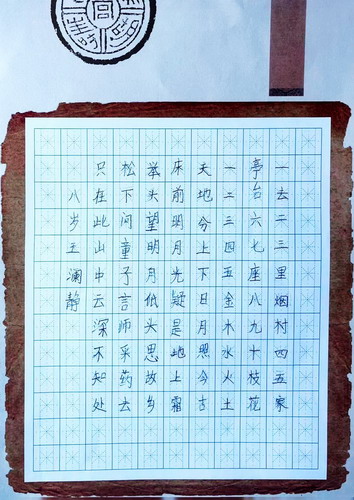 一去二三里烟村四五家
亭台六七座八九十枝花
一二三四五金木水火土
天地分上下日月照今古
床前明月光疑是地上霜
举头望明月低头思故乡
松下问童子言师采药去
只在此山中云深不知处
八岁王澜静